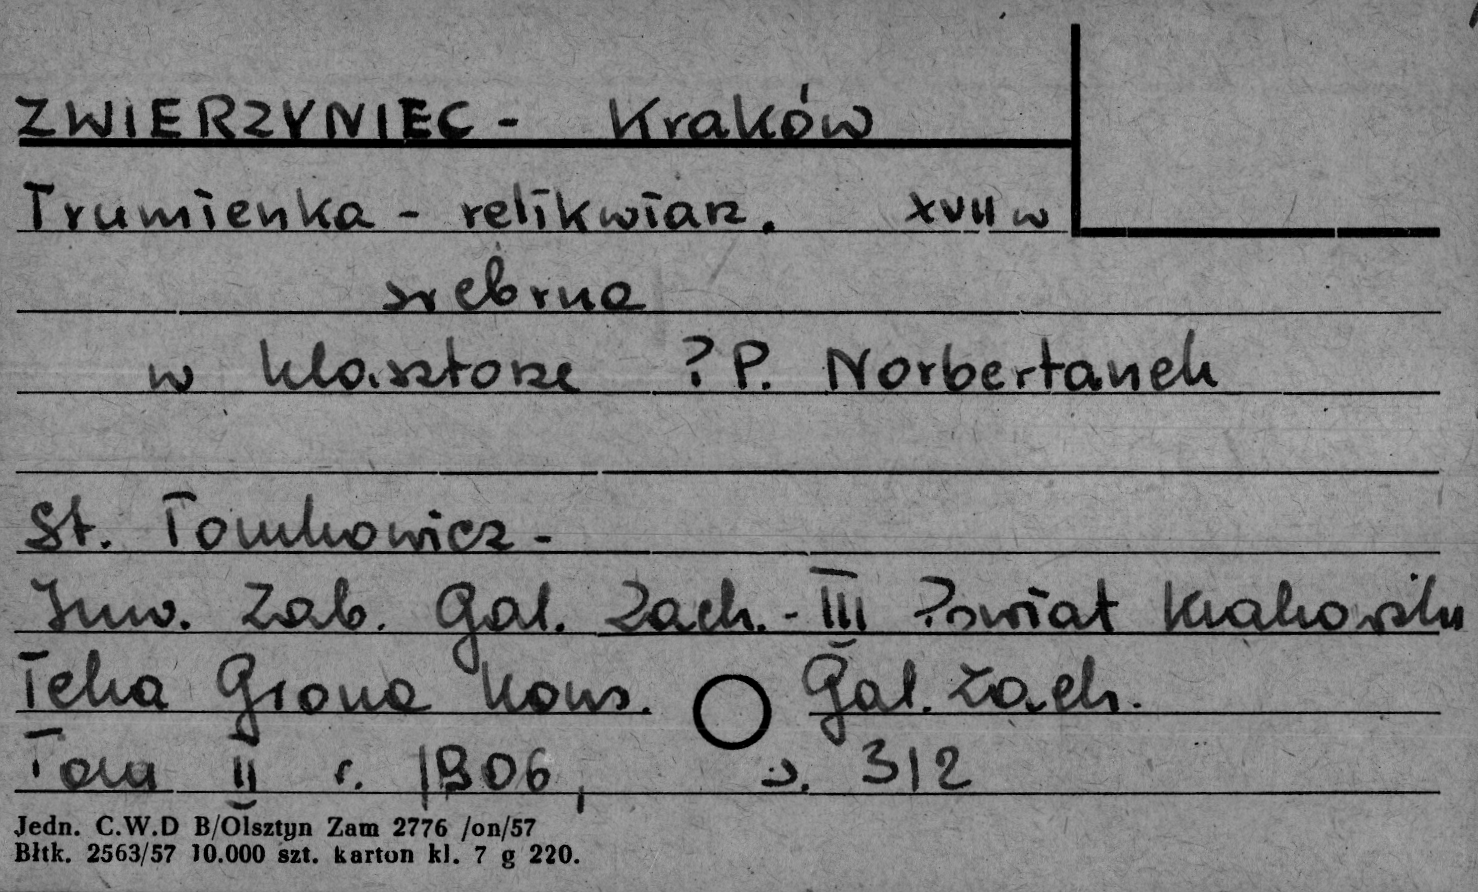 ZWIERZYNIEC - Kraków
Trumienka - relikwiarz. XVII w
srebrna
w klasztorze P.P. Norbertanek
St. Tomkowicz -
Inw. Zab. Gal. Zach. - III Powiat Krakowski
Teka Grona Kons. Gal. Zach.
Tom II r. 1906, s. 312
Jedn. C.W.D B/Olsztyn Zam 2776 /on/57
Błtk. 2563/57 10.000 szt. karton kl. 7 g 220.